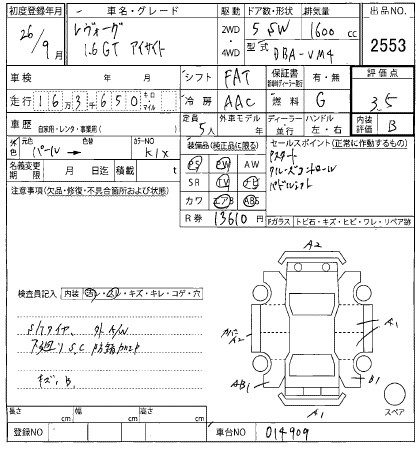 初度登録年月 車名・グレード 駆動 ドア数・形状 排気量 出品NO.
26/9月 レヴォーグ 1.6GT アイサイト 2WD・4WD 5 SW 1600 cc 2553
型式 DBA-VM4
車検 年 月 シフト FAT 保証書 有・無 評価点
走行 163千650 キロ・マイル 冷房 AAC 燃料 G 3.5
車歴 自家用・レンタ・事業用( ) 定員 5人 外車モデル 年 ディーラー・並行 ハンドル 左・右 内装評価 B
外色 元色 パール → 色替 カラーNO K1X
装備品(純正品に限る) セールスポイント(正常に作動するもの)
名義変更期限 月 日迄 積載 t
PS PW AW
SR TV ナビ
カワ エアB ABS
R券 13610円
アスタート
クルーズコントロール
パドルシフト
注意事項(欠品・修復・不具合箇所および状態)
Fガラス トビ石・キズ・ヒビ・ワレ・リペア跡
検査員記入 内装 汚・シミ・キズ・キレ・コゲ・穴
S/タイヤ 外A/W
下廻りS.C
キズ、B.
A2
A2
A1
AB1
B1
A1
スペア
長さ cm 幅 cm 高さ cm
登録NO 車台NO 014909